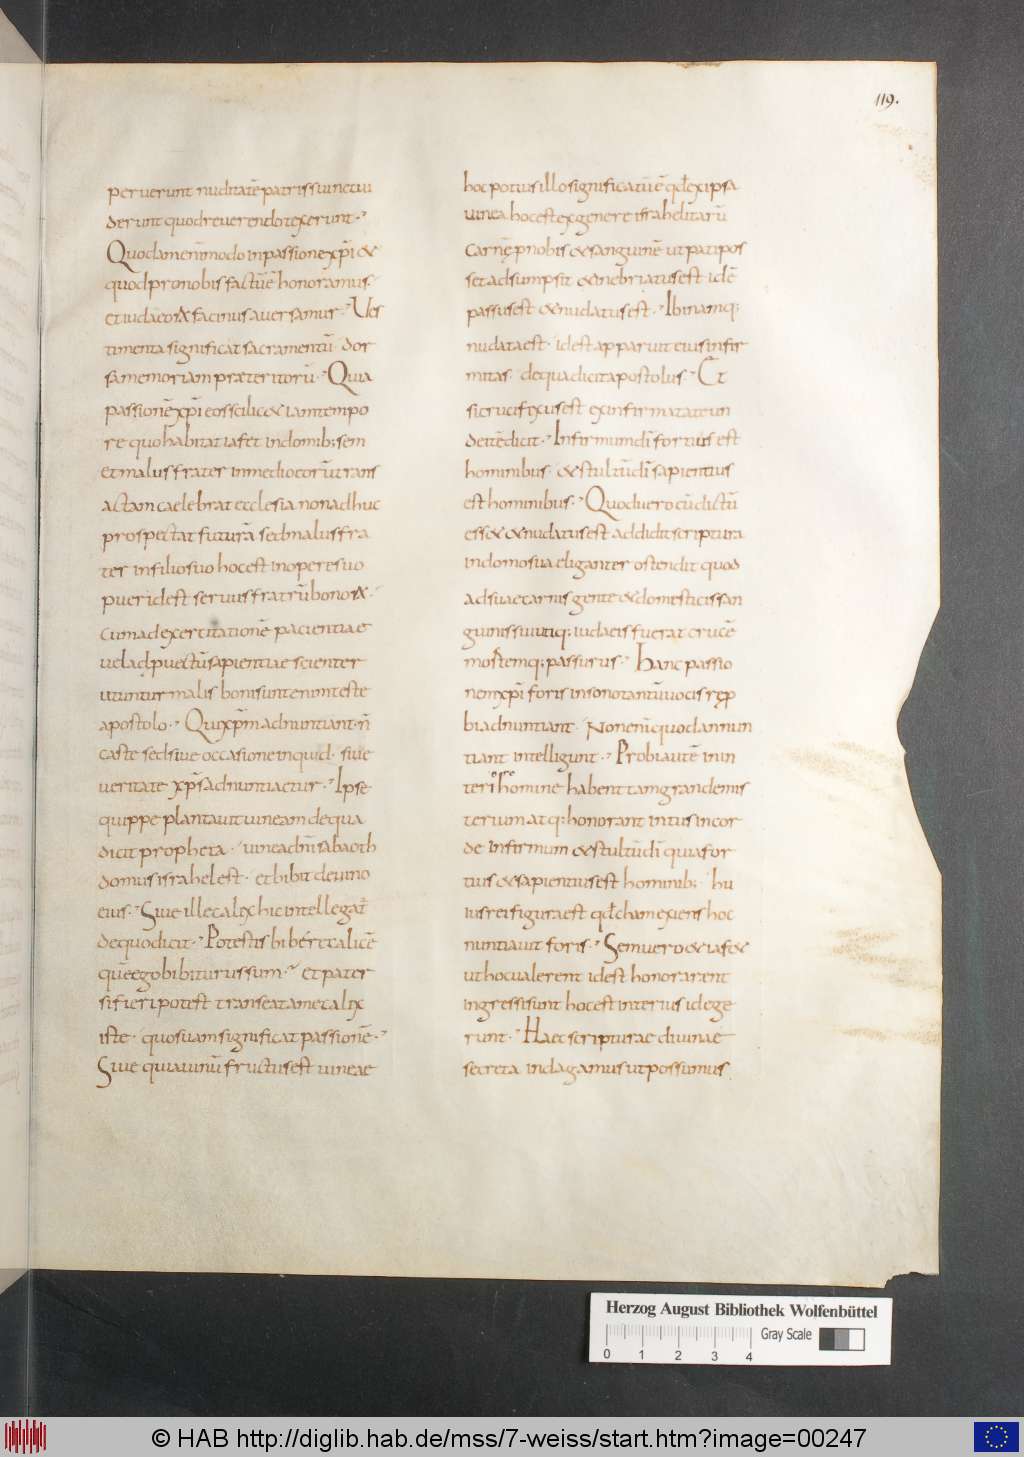 119.
peruerunt nuditatē patris sui nec ui
derunt quod reuerendo texerunt·
Quodam enīm modo in passione xp̄i &
quod pro nobis factūē honoramus·
et iudaeorꝝ facinus auersamur· Ues
timenta significat sacramentū· dor
sa memoriam praeteritorū· Quia
passionē xp̄i eo scilic& iam tempo
re quo habitat iafet in domib; sem
et malus frater in medio eorū trans
actam caelebrat ecclesia non adhuc
prospectat futurā sed malus fra
ter in filio suo hoc est in opere suo
puer id est seruus fratrū bonorꝝ·
Cum ad exercitationē pacientiae
uel ad ꝓuectū sapientiae scienter
utuntur malis boni sunt enim teste
apostolo· Qui xp̄m adnuntiant n̄
caste sed siue occasione inquid· siue
ueritate xp̄s adnuntiaetur· Ipse
quippe plantauit uineam de qua
dicit propheta· uinea dn̄i sabaoth
domus israhel est· et bibit de uino
eius· Siue ille calix hic intellegat̄
de quo dicit· Potestis bibere calicē
quē ego bibiturus sum· et pater
si fieri potest transeat a me calix
iste· quo suam significat passionē·
Siue quia uinū fructus est uineae
hoc potius illo significatū ē qd̄ ex ipsa
uinea hoc est ex genere israhelitarū
carnē ꝓ nobis & sanguinē ut pati pos
set adsumpsit & inebriatus est idē
passus est & nudatus est· Ibi namq;
nudata est· id est apparuit eius infir
mitas· de qua dicit apostolus· Et
si crucifixus est ex infirmatate un
de itē dicit· Infirmum dī fortius est
hominibus· & stultū dī sapientius
est hominibus· Quod uero cū dictū
ess& & nudatus est addidit scriptura
in domo sua eliganter ostendit quod
ad suae carnis gente & domesticis san
guinis sui utiq; iudaeis fuerat crucē
mortemq; passurus· Hanc passio
nem xp̄i foris in sono tantū uocis rep̄
bi adnuntiant· Non enī quod annun
tiant intelligunt· Probi autē in in
teriori homine habent tam grande mis
terium atq; honorant intus in cor
de infirmum & stultū dī quia for
tius & sapientius est hominib; hu
ius rei figura est qd̄ cham exiens hoc
nuntiauit foris· Sem uero & iaf&
ut hoc ualerent id est honorarent
ingressi sunt hoc est interius id ege
runt· Haec scripturae diuinae
secreta indagamus ut possumus
Herzog August Bibliothek Wolfenbüttel
0 1 2 3 4 Gray Scale
© HAB http://diglib.hab.de/mss/7-weiss/start.htm?image=00247